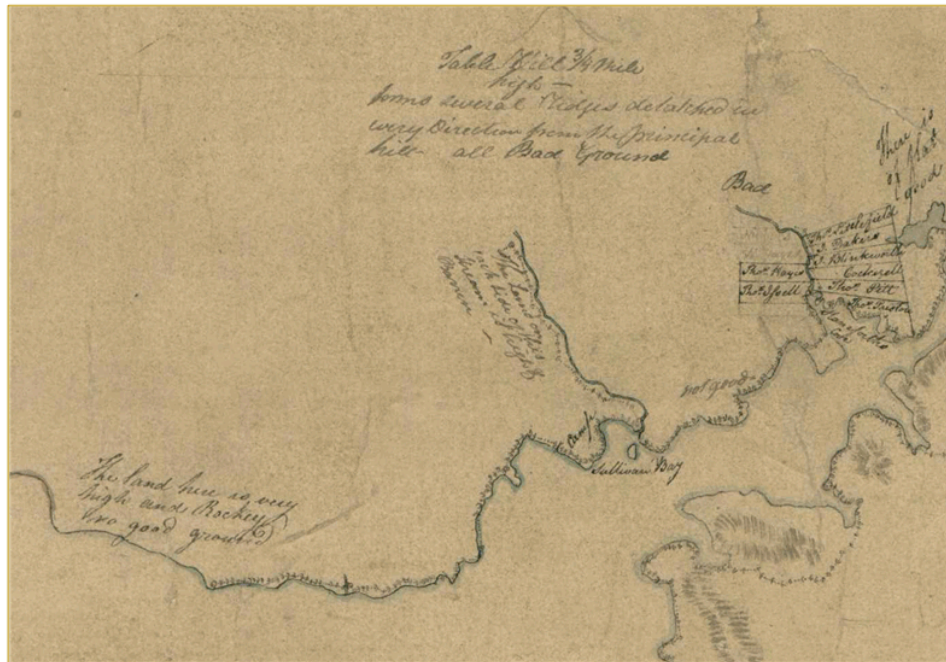 Table Hill 3/4 Mile
high —
forms several Ridges detatched in
every Direction from the principal
hill - all Bad Ground
There is
of flat
good
Bad
Thos. Littlefield
Blinkworth
Cockerell
Thos. Hayes
Thos. Pitt
The land on
each side of this
Stream is high &
Barren —
not good
Camp
Sullivan Bay
The land here is very
high and Rockey
no good ground